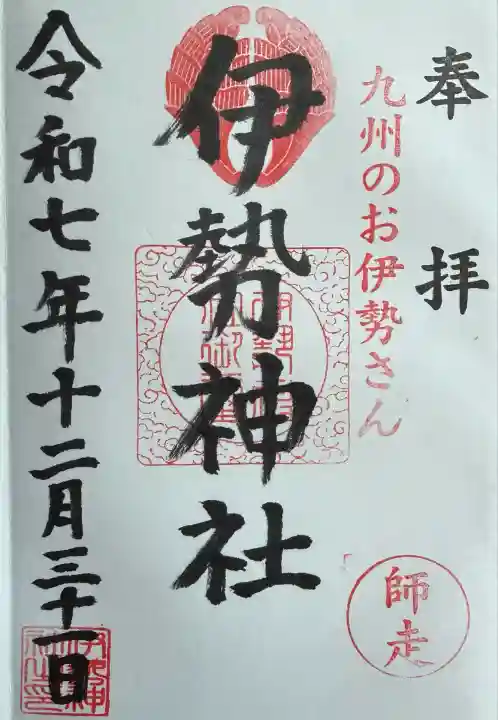 奉拝
九州のお伊勢さん
師走
伊勢神社
令和七年十二月三十一日